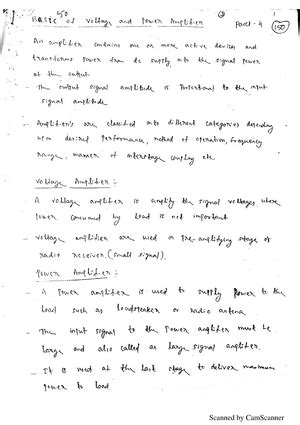 50
Basic of Voltage and Power Amplifier
Part - 4
150
An amplifier contains one or more active devices and
transforms power from dc supply into the signal power
at the output.
- The output signal amplitude is Proportional to the input
signal amplitude
- Amplifier's are classified into different categories depending
upon desired Performance, method of operation, frequency
range, manner of interstage coupling etc.
Voltage Amplifier :-
- A voltage amplifier is amplify the signal voltages where
Power consumed by load is not important
- voltage amplifier are used in Pre-amplifying stage of
radio receiver. (small signal).
Power Amplifier :-
- A Power amplifier is used to supply Power to the
load such as loudspeaker or radio antena.
- The input signal to the Power amplifier must be
large and also called as large signal amplifier.
- It is used at the last stage to deliver maximum
power to load.
Scanned by CamScanner